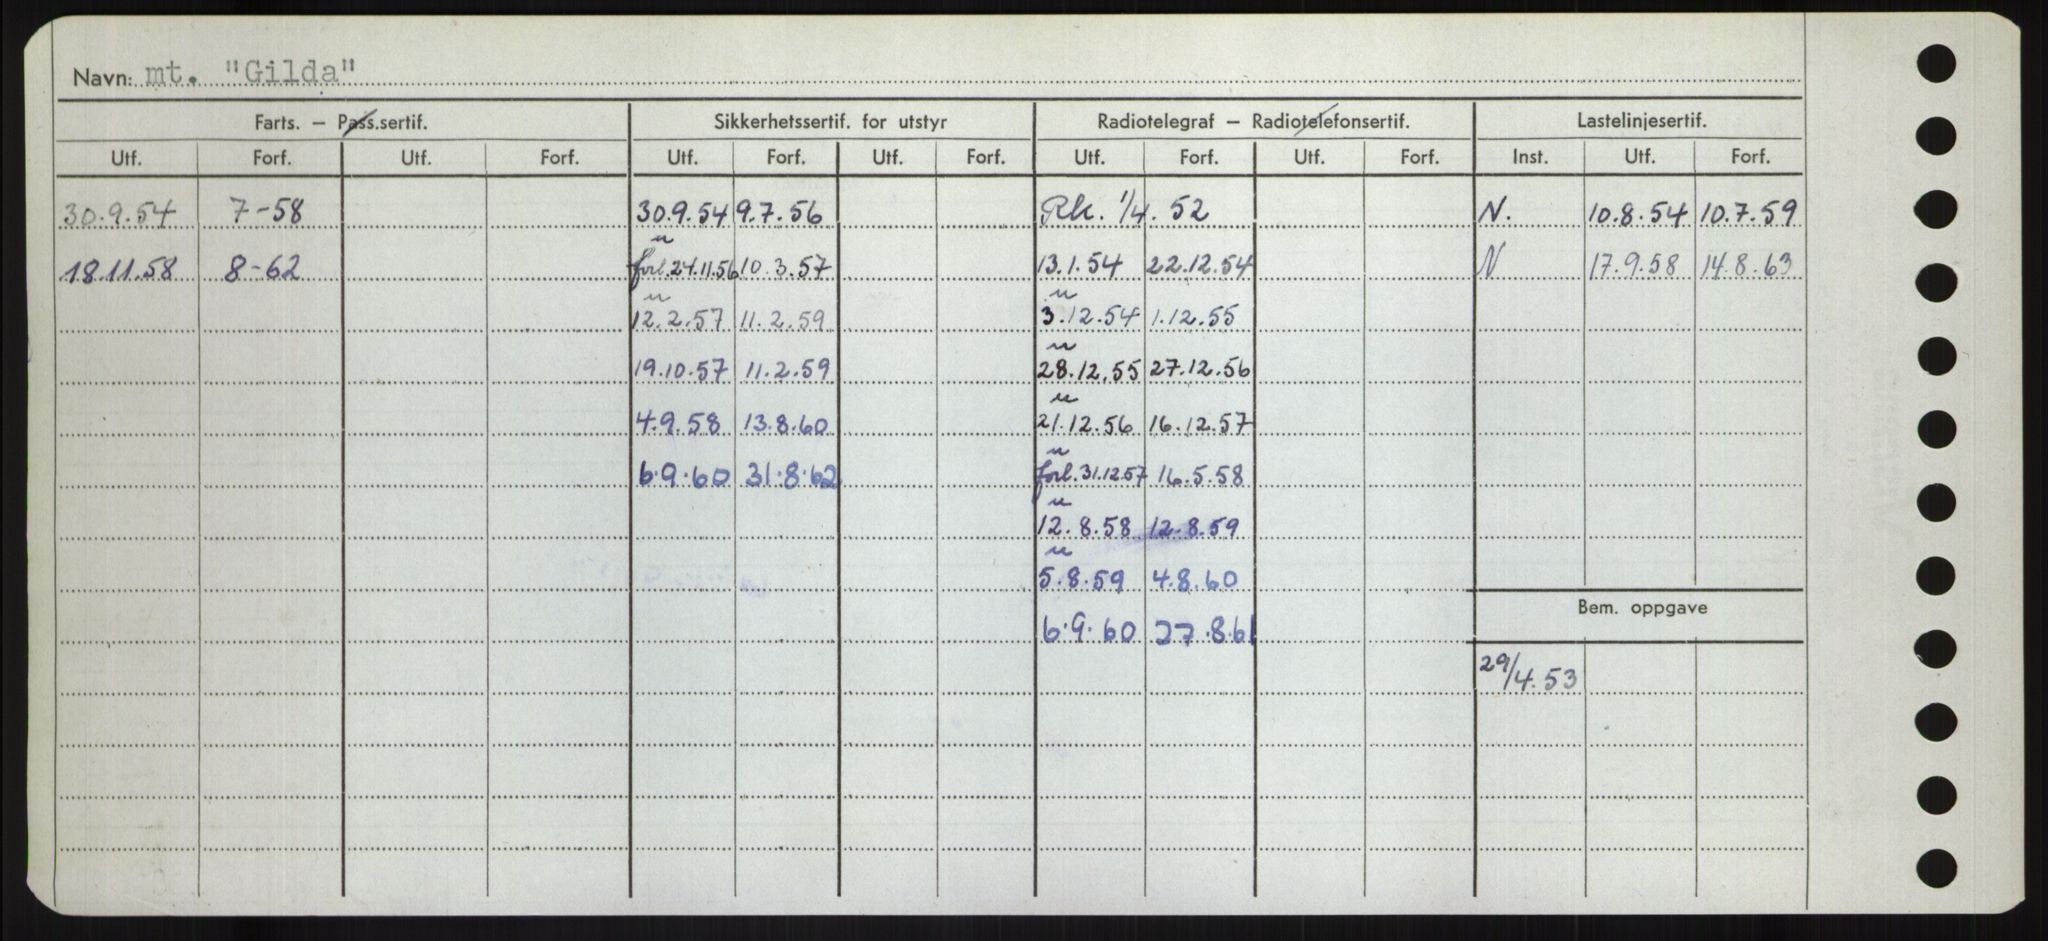 Navn: mt. "Gilda"
Farts. — Pass.sertif. Sikkerhetssertif. for utstyr Radiotelegraf — Radiotelefonsertif. Lastelinjesertif.
Utf. Forf. Utf. Forf. Utf. Forf. Utf. Forf. Utf. Forf. Utf. Forf. Inst. Utf. Forf.
30.9.54 7-58 30.9.54 9.7.56 Rk. 1/4. 52 N. 10.8.54 10.7.59
18.11.58 8-62 forl. 24.11.56 10.3.57 13.1.54 22.12.54 N 17.9.58 14.8.63
12.2.57 11.2.59 3.12.54 1.12.55
19.10.57 11.2.59 28.12.55 27.12.56
4.9.58 13.8.60 21.12.56 16.12.57
6.9.60 31.8.62 forl. 31.12.57 16.5.58
12.8.58 12.8.59
5.8.59 4.8.60
Bem. oppgave
6.9.60 27.8.61
29/4.53